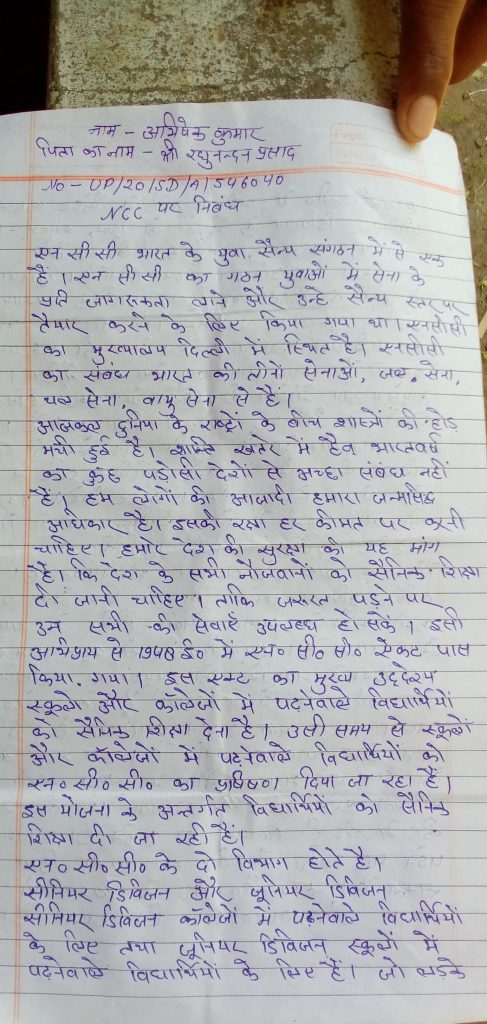 नाम - अभिषेक कुमार
पिता का नाम - श्री रघुनन्दन प्रसाद
Page
Date
No - UP/20/SD/A/546040
NCC पर निबंध
एन सी सी भारत के युवा सैन्य संगठन में से एक
है। एन सी सी का गठन युवाओं में सेना के
प्रति जागरूकता लाने और उन्हे सैन्य स्तर पर
तैयार करने के लिए किया गया था। एनसीसी
का मुख्यालय दिल्ली में स्थित है। एनसीसी
का संबंध भारत की तीनों सेनाओं, जल सेना,
थल सेना, वायु सेना से हैं।
आजकल दुनिया के राष्ट्रों के बीच शास्त्रों की होड
मची हुई है। शान्ति खतरे में है व भारतवर्ष
का कुछ पड़ोसी देशों से अच्छा संबंध नहीं
हैं। हम लोगों की आजादी हमारा जन्मसिद्ध
अधिकार है। इसकी रक्षा हर कीमत पर करनी
चाहिए। हमारे देश की सुरक्षा की यह मांग
है। कि देश के सभी नौजवानों को सैनिक शिक्षा
दी जानी चाहिए। ताकि जरूरत पड़ने पर
उन सभी की सेवाएँ उपलब्ध हो सके। इसी
अभिप्राय से 1948 ई० में एन० सी० सी० ऐक्ट पास
किया गया। इस एक्ट का मुख्य उद्देश्य
स्कूलों और कॉलेजों में पढ़नेवाले विद्यार्थियों
को सैनिक शिक्षा देना है। उसी समय से स्कूलों
और कॉलेजों में पढ़नेवाले विद्यार्थियों को
एन० सी० सी० का प्रशिक्षण दिया जा रहा हैं।
इस योजना के अन्तर्गत विद्यार्थियों को सैनिक
शिक्षा दी जा रही हैं।
एन० सी० सी० के दो विभाग होते है।
सीनियर डिविजन और जूनियर डिविजन
सीनियर डिविजन कालेजों में पढ़नेवाले विद्यार्थियों
के लिए तथा जूनियर डिविजन स्कूलों में
पढ़नेवाले विद्यार्थियों के लिए हैं। जो लड़के